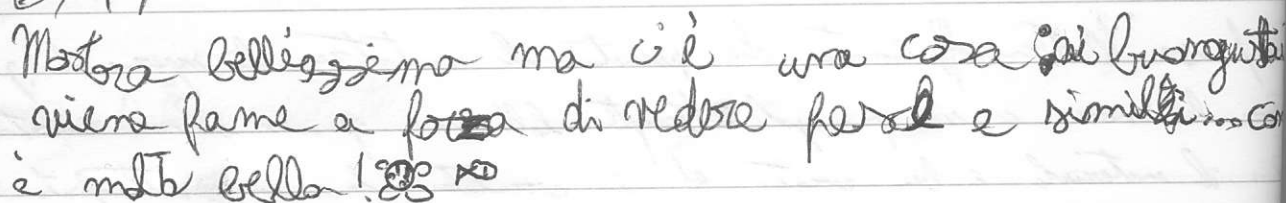 Mostra bellissima ma c'è una cosa ai buongusta
viene fame a forza di vedere pere e simili... co
è molto bella! XD